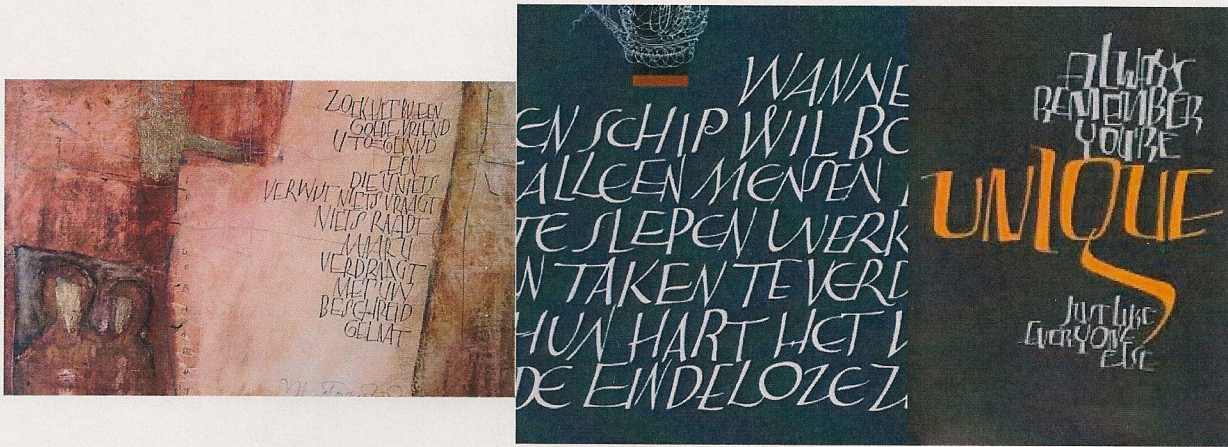 ZOEKT BY EEN
GOEDE VRIEND
U TOEGEWYD
EEN
DIE U NIETS
VERWYT NIETS VRAAGT
NIETS RAADT
MAAR U
VERDRAAGT
MET UW
BESCHREID
GELAAT
WANNE
EN SCHIP WIL BO
ALLEEN MENSEN
TE SLEPEN WERK
N TAKEN TE VERD
HUN HART HET V
DE EINDELOZE Z
ALWAYS
REMEMBER
YOU'RE
UNIQUE
JUST LIKE
EVERYONE
ELSE